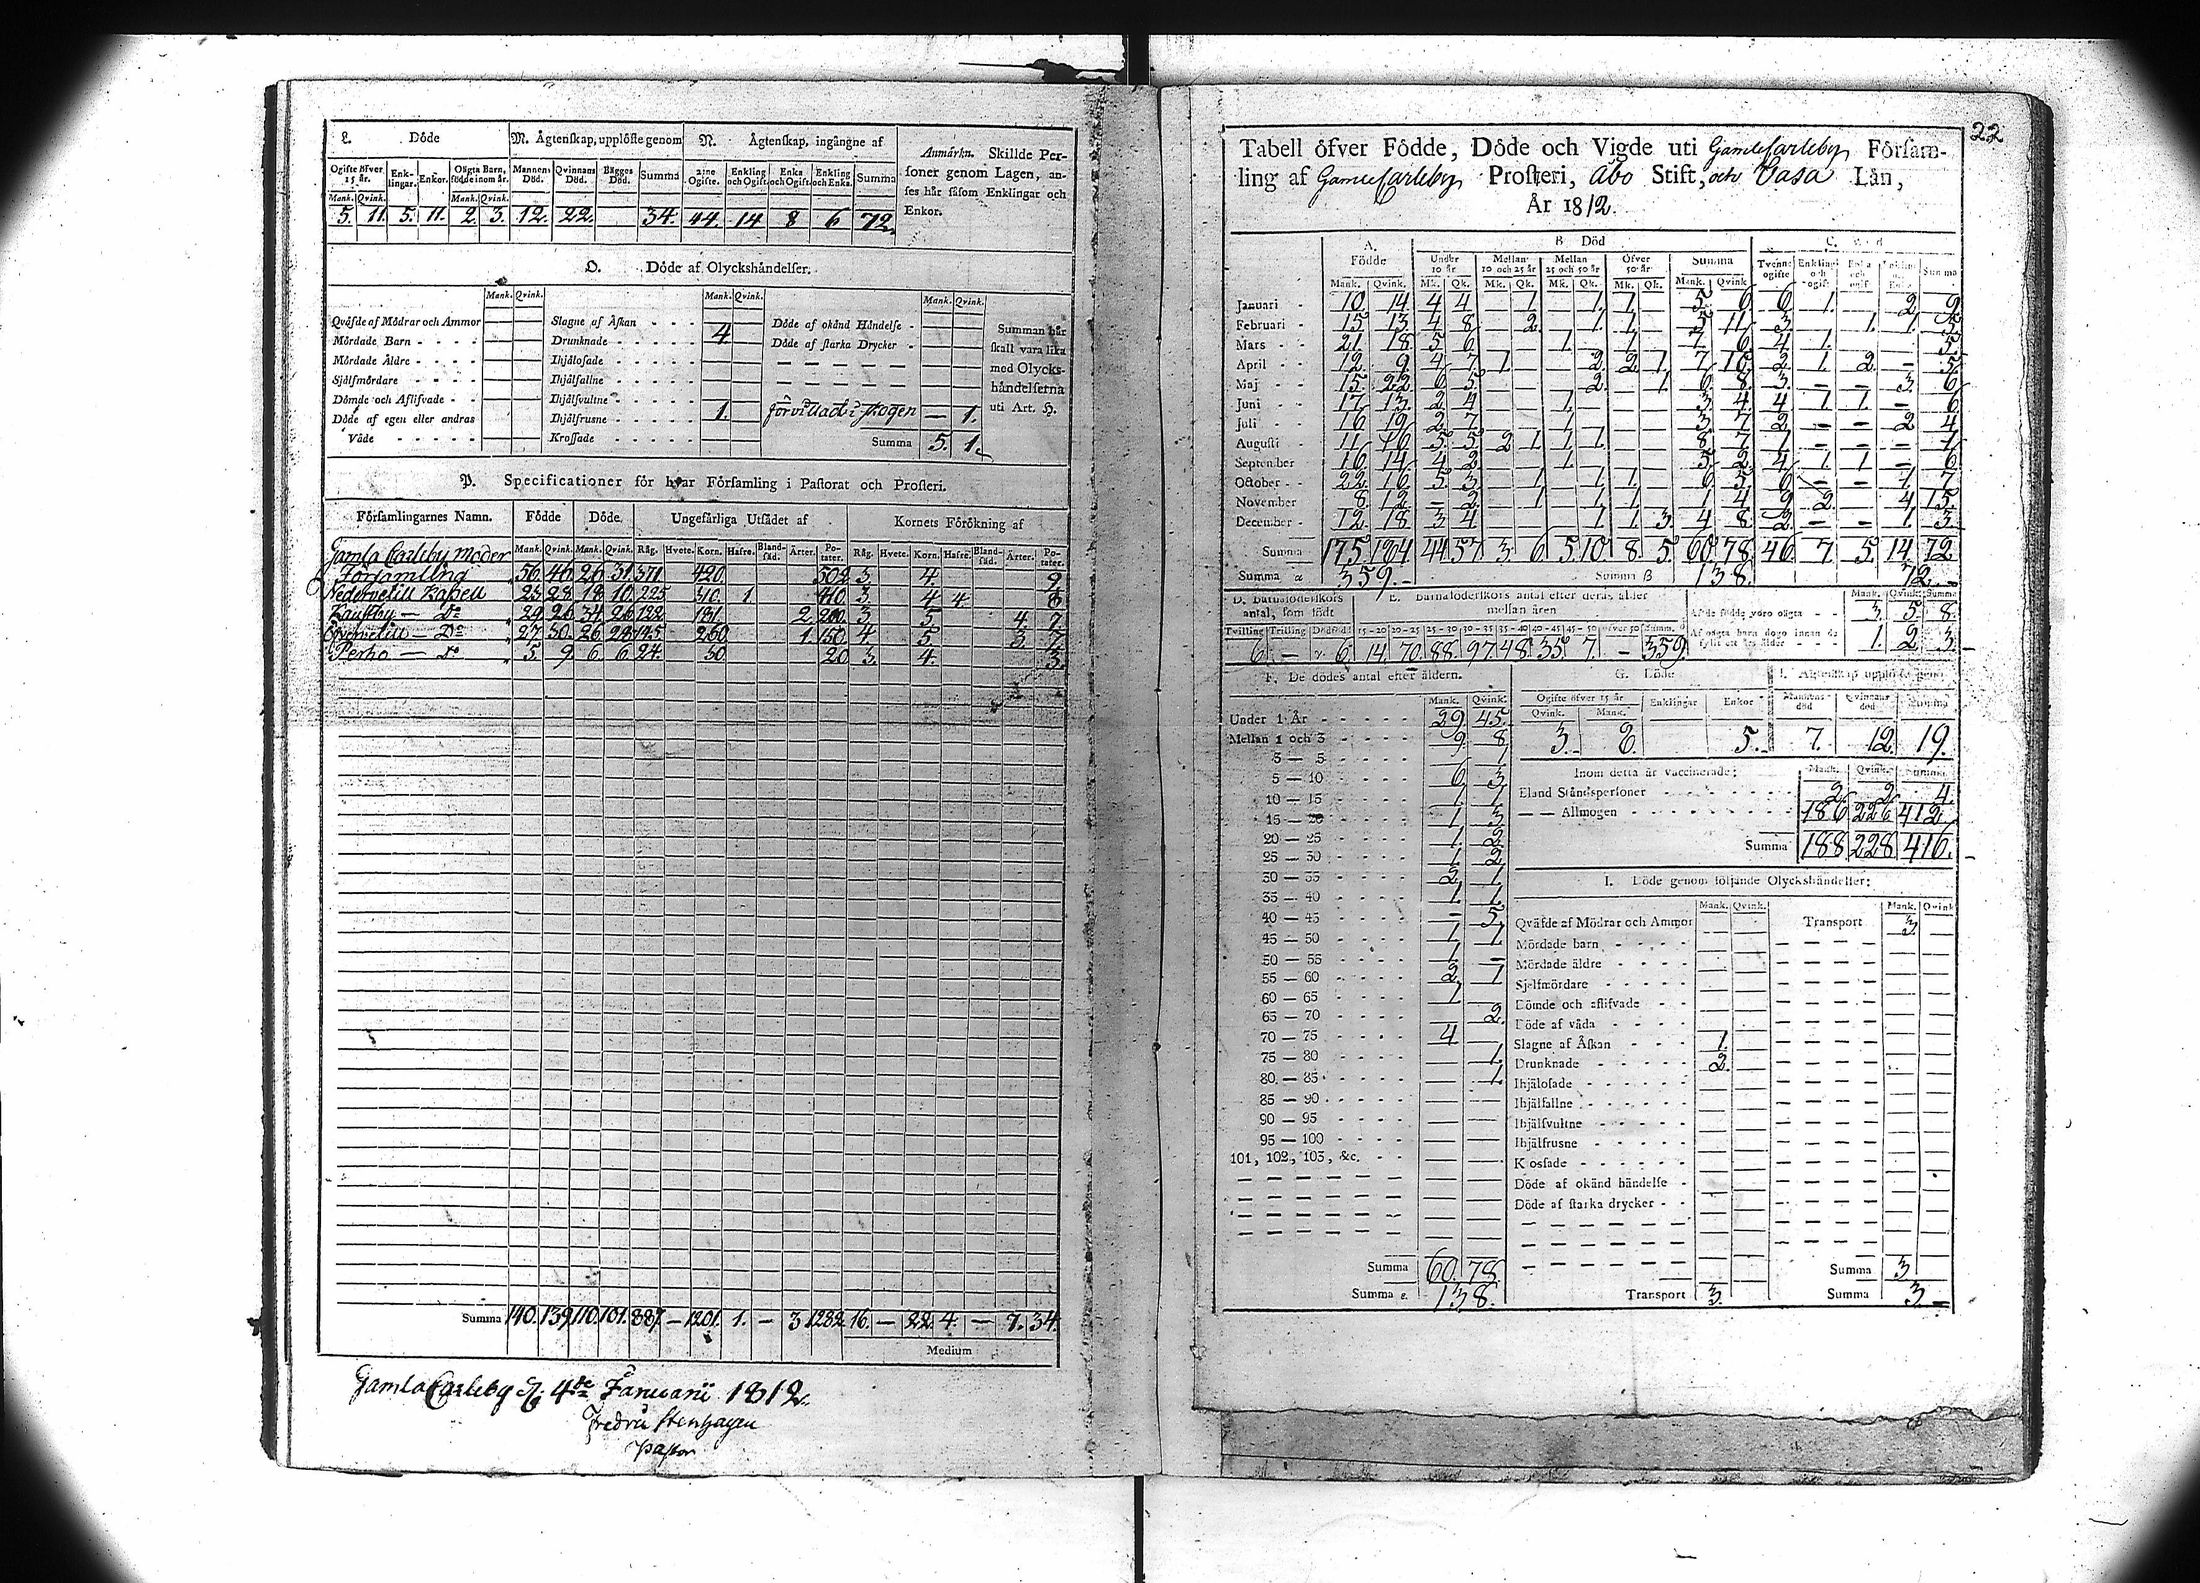 L. Döde M. Ägtenskap, upplöste genom N. Ägtenskap, ingångne af
Ogifte öfver 15 år. Enklingar. Enkor. Oägta Barn, födde inom år. Mannens Död. Qvinnans Död. Bägges Död. Summa 2:ne Ogifte. Enkling och Ogift. Enka och Ogift. Enkling och Enka. Summa
Mank. Qvink. Mank. Qvink.
5. 11. 5. 11. 2. 3. 12. 22. 34. 44. 14 8 6 72.
Anmärkn. Skillde Per-
soner genom Lagen, an-
ses här såsom Enklingar och
Enkor.
O. Döde af Olyckshändelser.
Mank. Qvink. Mank. Qvink. Mank. Qvink.
Qväfde af Mödrar och Ammor
Mördade Barn
Mördade Äldre
Självmördare
Dömde och Aflifvade
Döde af egen eller andras
Våde
Slagne af Åskan
Drunknade 4
Ihjälosade
Ihjälfallne
Ihjälsvultne
Ihjälfrusne 1.
Krossade
Döde af okänd Händelse
Döde af starka Drycker
förvillad i skogen — 1.
Summa 5. 1.
Summan här
skall vara lika
med Olycks-
händelserna
uti Art. H.
P. Specificationer för hvar Församling i Pastorat och Prosteri.
Församlingarnes Namn. Födde Döde. Ungefärliga Utsädet af Kornets Förökning af
Mank. Qvink. Mank. Qvink. Råg. Hvete. Korn. Hafre. Blandsäd. Ärter. Potater. Råg. Hvete. Korn. Hafre. Blandsäd. Ärter. Potater.
Gamla Carleby Moder
Församling 56. 46. 26 31. 371 420 502 3. 4. 9
Nedervetill Kapell 23 28 18 10. 225 310. 1 410 3. 4 4 8
Kaustby — Do 29 26 34 26 122 181 2 200 3 5 4 7
Öfvervetill — Do 27 30. 26 28 145 260 1 150 4 5. 3. 7
Perho — Do 5. 9 6 6 24. 30 20 3. 4. 3.
Summa 140. 139. 110. 101. 887. — 1201. 1. — 3 1282 16. — 22 4. — 7. 34.
Medium
Gamla Carleby d. 4de Januarii 1812.
Fredric Stenhagen
Pastor
22
Tabell öfver Födde, Döde och Vigde uti Gamle Carleby Försam-
ling af Gamle Carleby Prosteri, Åbo Stift, och Vasa Län,
År 1812.
A. Födde B Död C.
Under 10 år Mellan 10 och 25 år Mellan 25 och 50 år Öfver 50 år Summa Tvenne ogifte Enkling och ogift Summa
Mank. Qvink. Mk. Qk. Mk. Qk. Mk. Qk. Mk. Qk. Mank. Qvink
Januari 10. 14 4 4 1 1 1. 5. 6 6 1. 2 9
Februari 15 13 4 8 2. 1. 1. 5 11 3. 1. 1. 5
Mars 21 18. 5 6 1. 1. 7. 6 4 1. 5
April 12. 9 4 7 1. 2 2 1. 7 10 2 1. 2. — 5
Maj 15. 22 6 5 2. 1. 6. 8. 3 — — 3. 6
Juni 17. 13. 2 4 1. 3 4 4 1. 1. — 6
Juli 16 19 2 7 1. 3 7 2 — — 2 4
Augusti 11 16 5. 5 2 1 1 1. 8 7 1 — — — 1
September 16 14 4 2 1. 5 2 4 1 1 — 6
October 22 16 5. 3 1 1. 1. 6 5 6 — — 1. 7
November 8. 12 — 2 1 1. 1. 1 4 9 2. 4 15.
December 12. 18 3 4 1. 1. 3. 4 8 2 — — 1. 3
Summa 175. 184. 44 57 3. 6. 5. 10 8. 5. 60. 78 46 7. 5. 14 72
Summa α 359.— Summa β 138. 72.—
D. Barnaföderskors antal, som födt
E. Barnaföderskors antal efter deras ålder mellan åren
Tvilling Trilling 15-20 20-25 25-30 30-35 35-40 40-45 45-50 öfver 50 Summ.
6 — 6 14. 70. 88. 97. 48. 35. 7. — 359.
Mank. Qvink. Summa
Af de födde voro oägta 3. 5. 8.
Af oägta barn dogo innan de
fyllt ett års ålder 1. 2 3.
F. De dödes antal efter åldern.
Mank. Qvink.
Under 1 År 29. 45.
Mellan 1 och 3 9. 8
3 — 5 1
5 — 10 6 3
10 — 15 1 1
15 — 20 1 3
20 — 25 1. 2
25 — 30 1. 2
30 — 35 2 1
35 — 40 1. 1.
40 — 45 — 5.
45 — 50 1 1
50 — 55 1. —
55 — 60 2. 1
60 — 65 1
65 — 70 2.
70 — 75 4
75 — 80 1.
80 — 85 1.
85 — 90
90 — 95
95 — 100
101, 102, 103, &c.
Summa 60. 78.
Summa 138.
G. Döde
Ogifte öfver 15 år Enklingar Enkor
Qvink. Mank.
3. 2. 5.
Mannens död Qvinnans död Summa
7. 12. 19.
Inom detta år vaccinerade:
Mank. Qvink. Summa
Bland Ståndspersoner 2 2 4.
— — Allmogen 186 226 412
Summa 188. 228 416.
I. Döde genom följande Olyckshändelser:
Mank. Qvink. Mank. Qvink
Qväfde af Mödrar och Ammor
Mördade barn
Mördade äldre
Sjelfmördare
Dömde och aflifvade
Döde af våda
Slagne af Åskan 1.
Drunknade 2.
Ihjälosade
Ihjälfallne
Ihjälsvultne
Ihjälfrusne
Krossade
Döde af okänd händelse
Döde af starka drycker
Transport 3.
Transport 3.
Summa 3
Summa 3.—